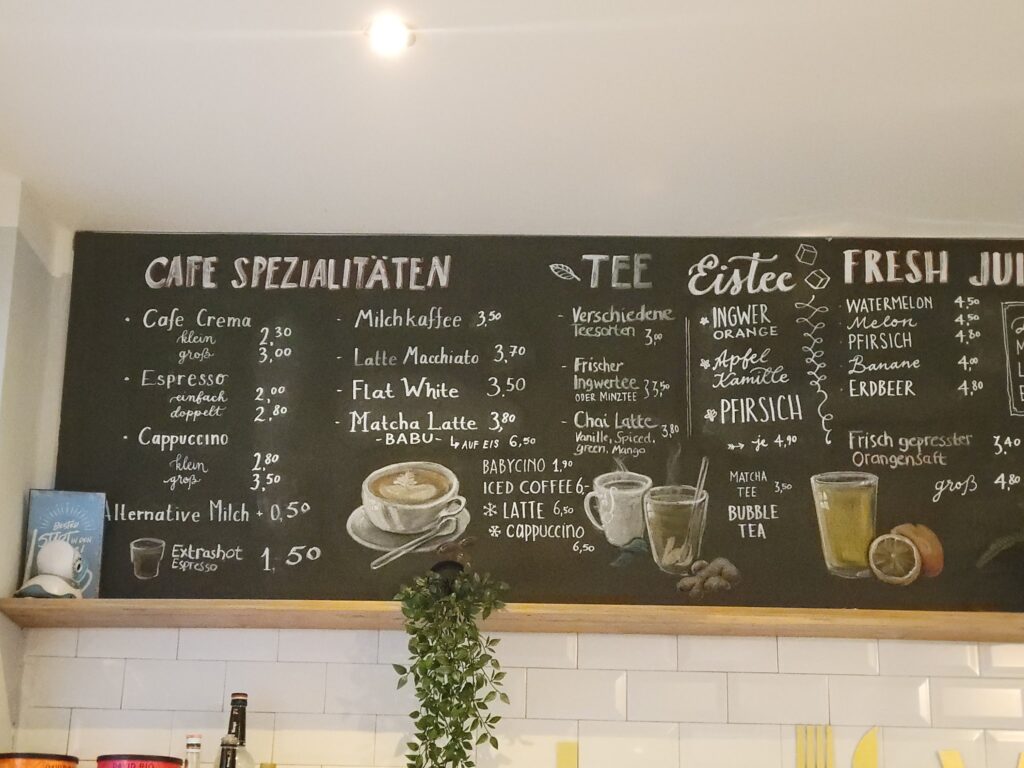 CAFE SPEZIALITÄTEN
· Cafe Crema
klein 2,30
groß 3,00
· Espresso
einfach 2,00
doppelt 2,80
· Cappuccino
klein 2,80
groß 3,50
Alternative Milch + 0,50
Extrashot
Espresso
1,50
- Milchkaffee 3,50
- Latte Macchiato 3,70
- Flat White 3,50
- Matcha Latte 3,80
-BABU- ↳ AUF EIS 6,50
BABYCINO 1,90
ICED COFFEE 6,-
* LATTE 6,50
* CAPPUCCINO
6,50
TEE
- Verschiedene
Teesorten
3,00
- Frischer
Ingwertee
ODER MINZTEE 3,50
- Chai Latte
3,80
Vanille, Spiced,
green, Mango
Eistee
* INGWER
ORANGE
* Apfel
Kamille
* PFIRSICH
je 4,90
MATCHA
TEE 3,50
BUBBLE
TEA
FRESH JUI
· WATERMELON 4,50
· Melon 4,50
· PFIRSICH 4,80
· Banane 4,00
· ERDBEER 4,80
Frisch gepresster
Orangensaft
3,40
groß 4,80